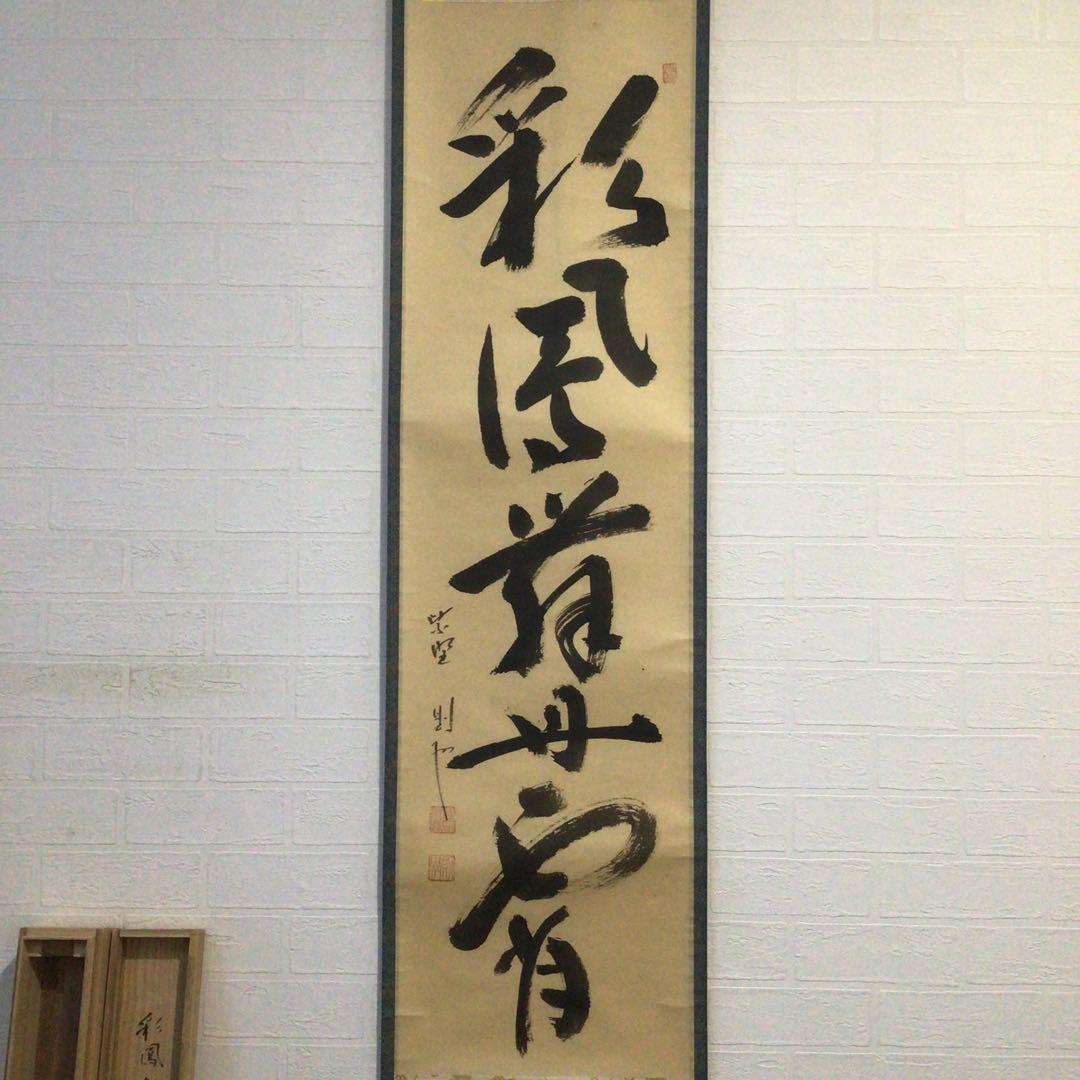 彩鳳舞丹霄
紫野
彩鳳